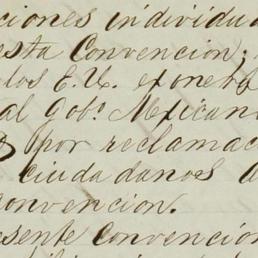 ciones individua
esta Convencion;
los E.U. exonera
al Gobº. Mexican
por reclamac
ciudadanos d
onvencion.
esente convencion